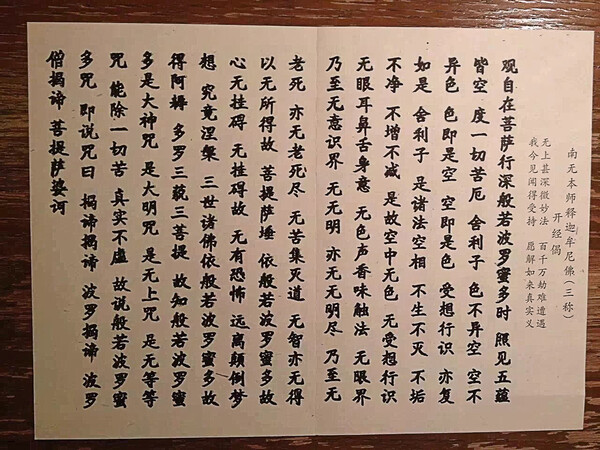 南无本师释迦牟尼佛(三称)
开经偈
无上甚深微妙法 百千万劫难遭遇
我今见闻得受持 愿解如来真实义
观自在菩萨行深般若波罗蜜多时 照见五蕴
皆空 度一切苦厄 舍利子 色不异空 空不
异色 色即是空 空即是色 受想行识 亦复
如是 舍利子 是诸法空相 不生不灭 不垢
不净 不增不减 是故空中无色 无受想行识
无眼耳鼻舌身意 无色声香味触法 无眼界
乃至无意识界 无无明 亦无无明尽 乃至无
老死 亦无老死尽 无苦集灭道 无智亦无得
以无所得故 菩提萨埵 依般若波罗蜜多故
心无挂碍 无挂碍故 无有恐怖 远离颠倒梦
想 究竟涅槃 三世诸佛依般若波罗蜜多故
得阿耨 多罗三藐三菩提 故知般若波罗蜜
多是大神咒 是大明咒 是无上咒 是无等等
咒 能除一切苦 真实不虚 故说般若波罗蜜
多咒 即说咒曰 揭谛揭谛 波罗揭谛 波罗
僧揭谛 菩提萨婆诃